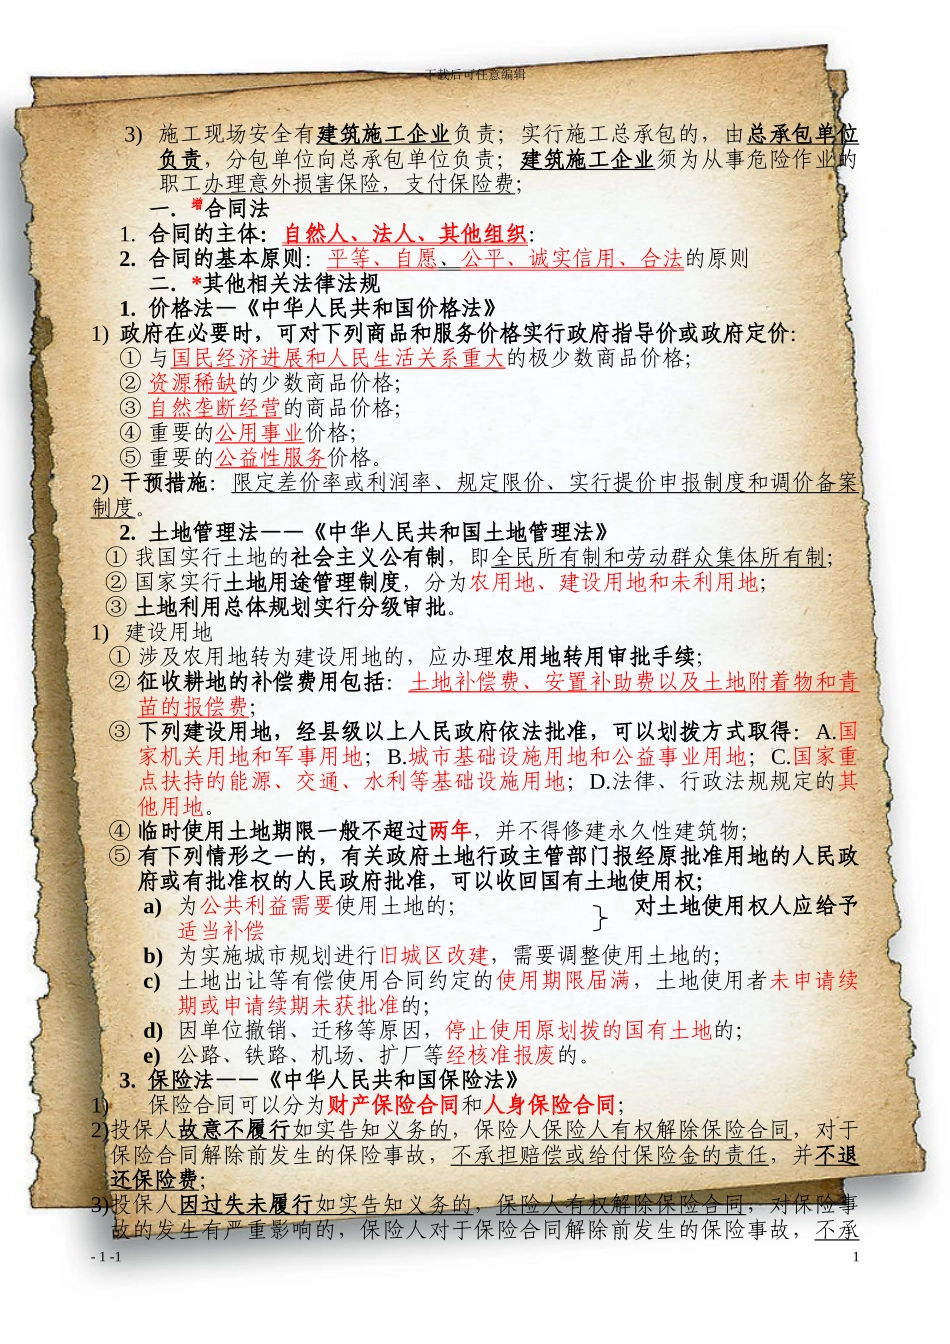 下载后可任意编辑
3) 施工现场安全有建筑施工企业负责；实行施工总承包的，由总承包单位
负责，分包单位向总承包单位负责；建筑施工企业须为从事危险作业的
职工办理意外损害保险，支付保险费；
一. 增合同法
1. 合同的主体：自然人、法人、其他组织；
2. 合同的基本原则：平等、自愿、公平、诚实信用、合法的原则
二. *其他相关法律法规
1. 价格法—《中华人民共和国价格法》
1) 政府在必要时，可对下列商品和服务价格实行政府指导价或政府定价：
① 与国民经济进展和人民生活关系重大的极少数商品价格；
② 资源稀缺的少数商品价格；
③ 自然垄断经营的商品价格；
④ 重要的公用事业价格；
⑤ 重要的公益性服务价格。
2) 干预措施：限定差价率或利润率、规定限价、实行提价申报制度和调价备案
制度。
2. 土地管理法——《中华人民共和国土地管理法》
① 我国实行土地的社会主义公有制，即全民所有制和劳动群众集体所有制；
② 国家实行土地用途管理制度，分为农用地、建设用地和未利用地；
③ 土地利用总体规划实行分级审批。
1) 建设用地
① 涉及农用地转为建设用地的，应办理农用地转用审批手续；
② 征收耕地的补偿费用包括：土地补偿费、安置补助费以及土地附着物和青
苗的报偿费；
③ 下列建设用地，经县级以上人民政府依法批准，可以划拨方式取得：A.国
家机关用地和军事用地；B.城市基础设施用地和公益事业用地；C.国家重
点扶持的能源、交通、水利等基础设施用地；D.法律、行政法规规定的其
他用地。
④ 临时使用土地期限一般不超过两年，并不得修建永久性建筑物；
⑤ 有下列情形之一的，有关政府土地行政主管部门报经原批准用地的人民政
府或有批准权的人民政府批准，可以收回国有土地使用权；
a) 为公共利益需要使用土地的； } 对土地使用权人应给予
适当补偿
b) 为实施城市规划进行旧城区改建，需要调整使用土地的；
c) 土地出让等有偿使用合同约定的使用期限届满，土地使用者未申请续
期或申请续期未获批准的；
d) 因单位撤销、迁移等原因，停止使用原划拨的国有土地的；
e) 公路、铁路、机场、扩厂等经核准报废的。
3. 保险法——《中华人民共和国保险法》
1) 保险合同可以分为财产保险合同和人身保险合同；
2)投保人故意不履行如实告知义务的，保险人保险人有权解除保险合同，对于
保险合同解除前发生的保险事故，不承担赔偿或给付保险金的责任，并不退
还保险费；
3)投保人因过失未履行如实告知义务的，保险人有权解除保险合同，对保险事
故的发生有严重影响的，保险人对于保险合同解除前发生的保险事故，不承
- 1 -1 1